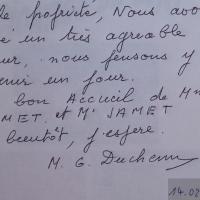 le propriété, Nous avo
é un très agréable
ur, nous pensons y
enir un jour.
bon Accueil de Mm
MET. et Mr JAMET
bientôt, j'espère.
M. G. Duchenn
14.02